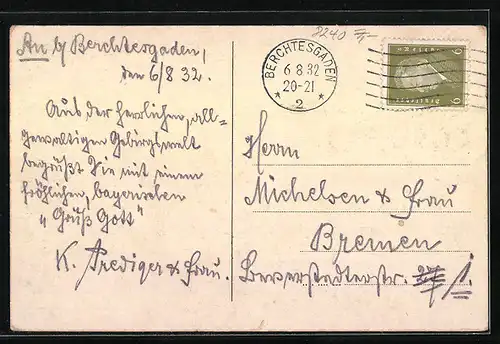 2240
An b/ Berchtesgaden,
den 6/8 32.
Aus der herrlichen, all-
gewaltigen Gebirgswelt
begrüßt Sie mit einem
fröhlichen, bayerischen
„Grüß Gott“
K. Prediger & Frau.
BERCHTESGADEN
6.8.32
20-21
* 2 *
6 6
Herrn
Michelsen & Frau
Bremen
1.